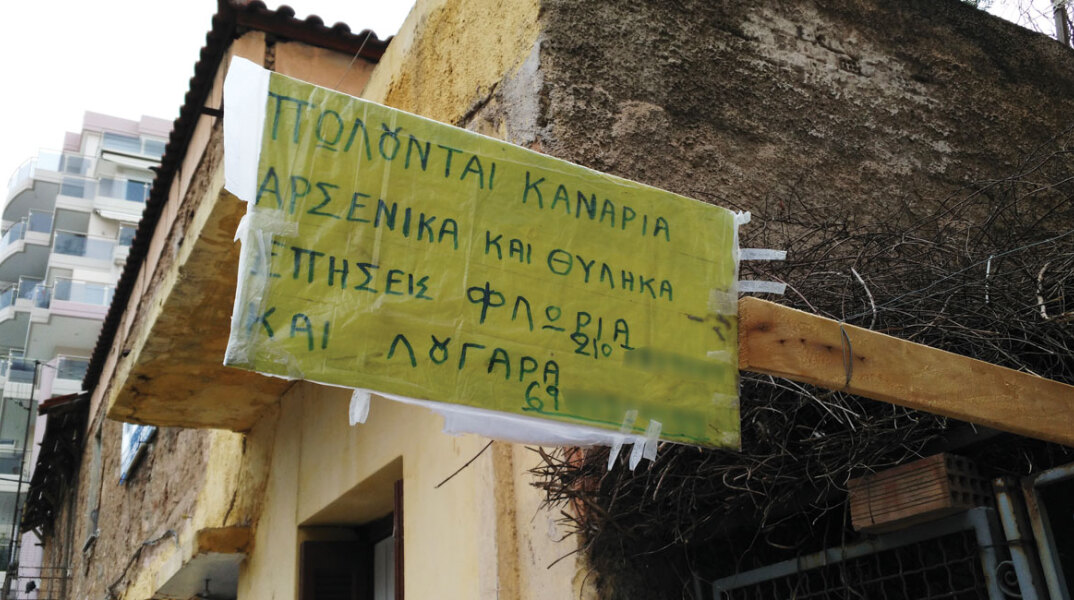 ΠΩΛΟΥΝΤΑΙ ΚΑΝΑΡΙΑ
ΑΡΣΕΝΙΚΑ ΚΑΙ ΘΥΛΗΚΑ
ΕΠΗΣΕΙΣ ΦΛΩΡΙΑ
ΚΑΙ ΛΥΓΑΡΑ
210
69